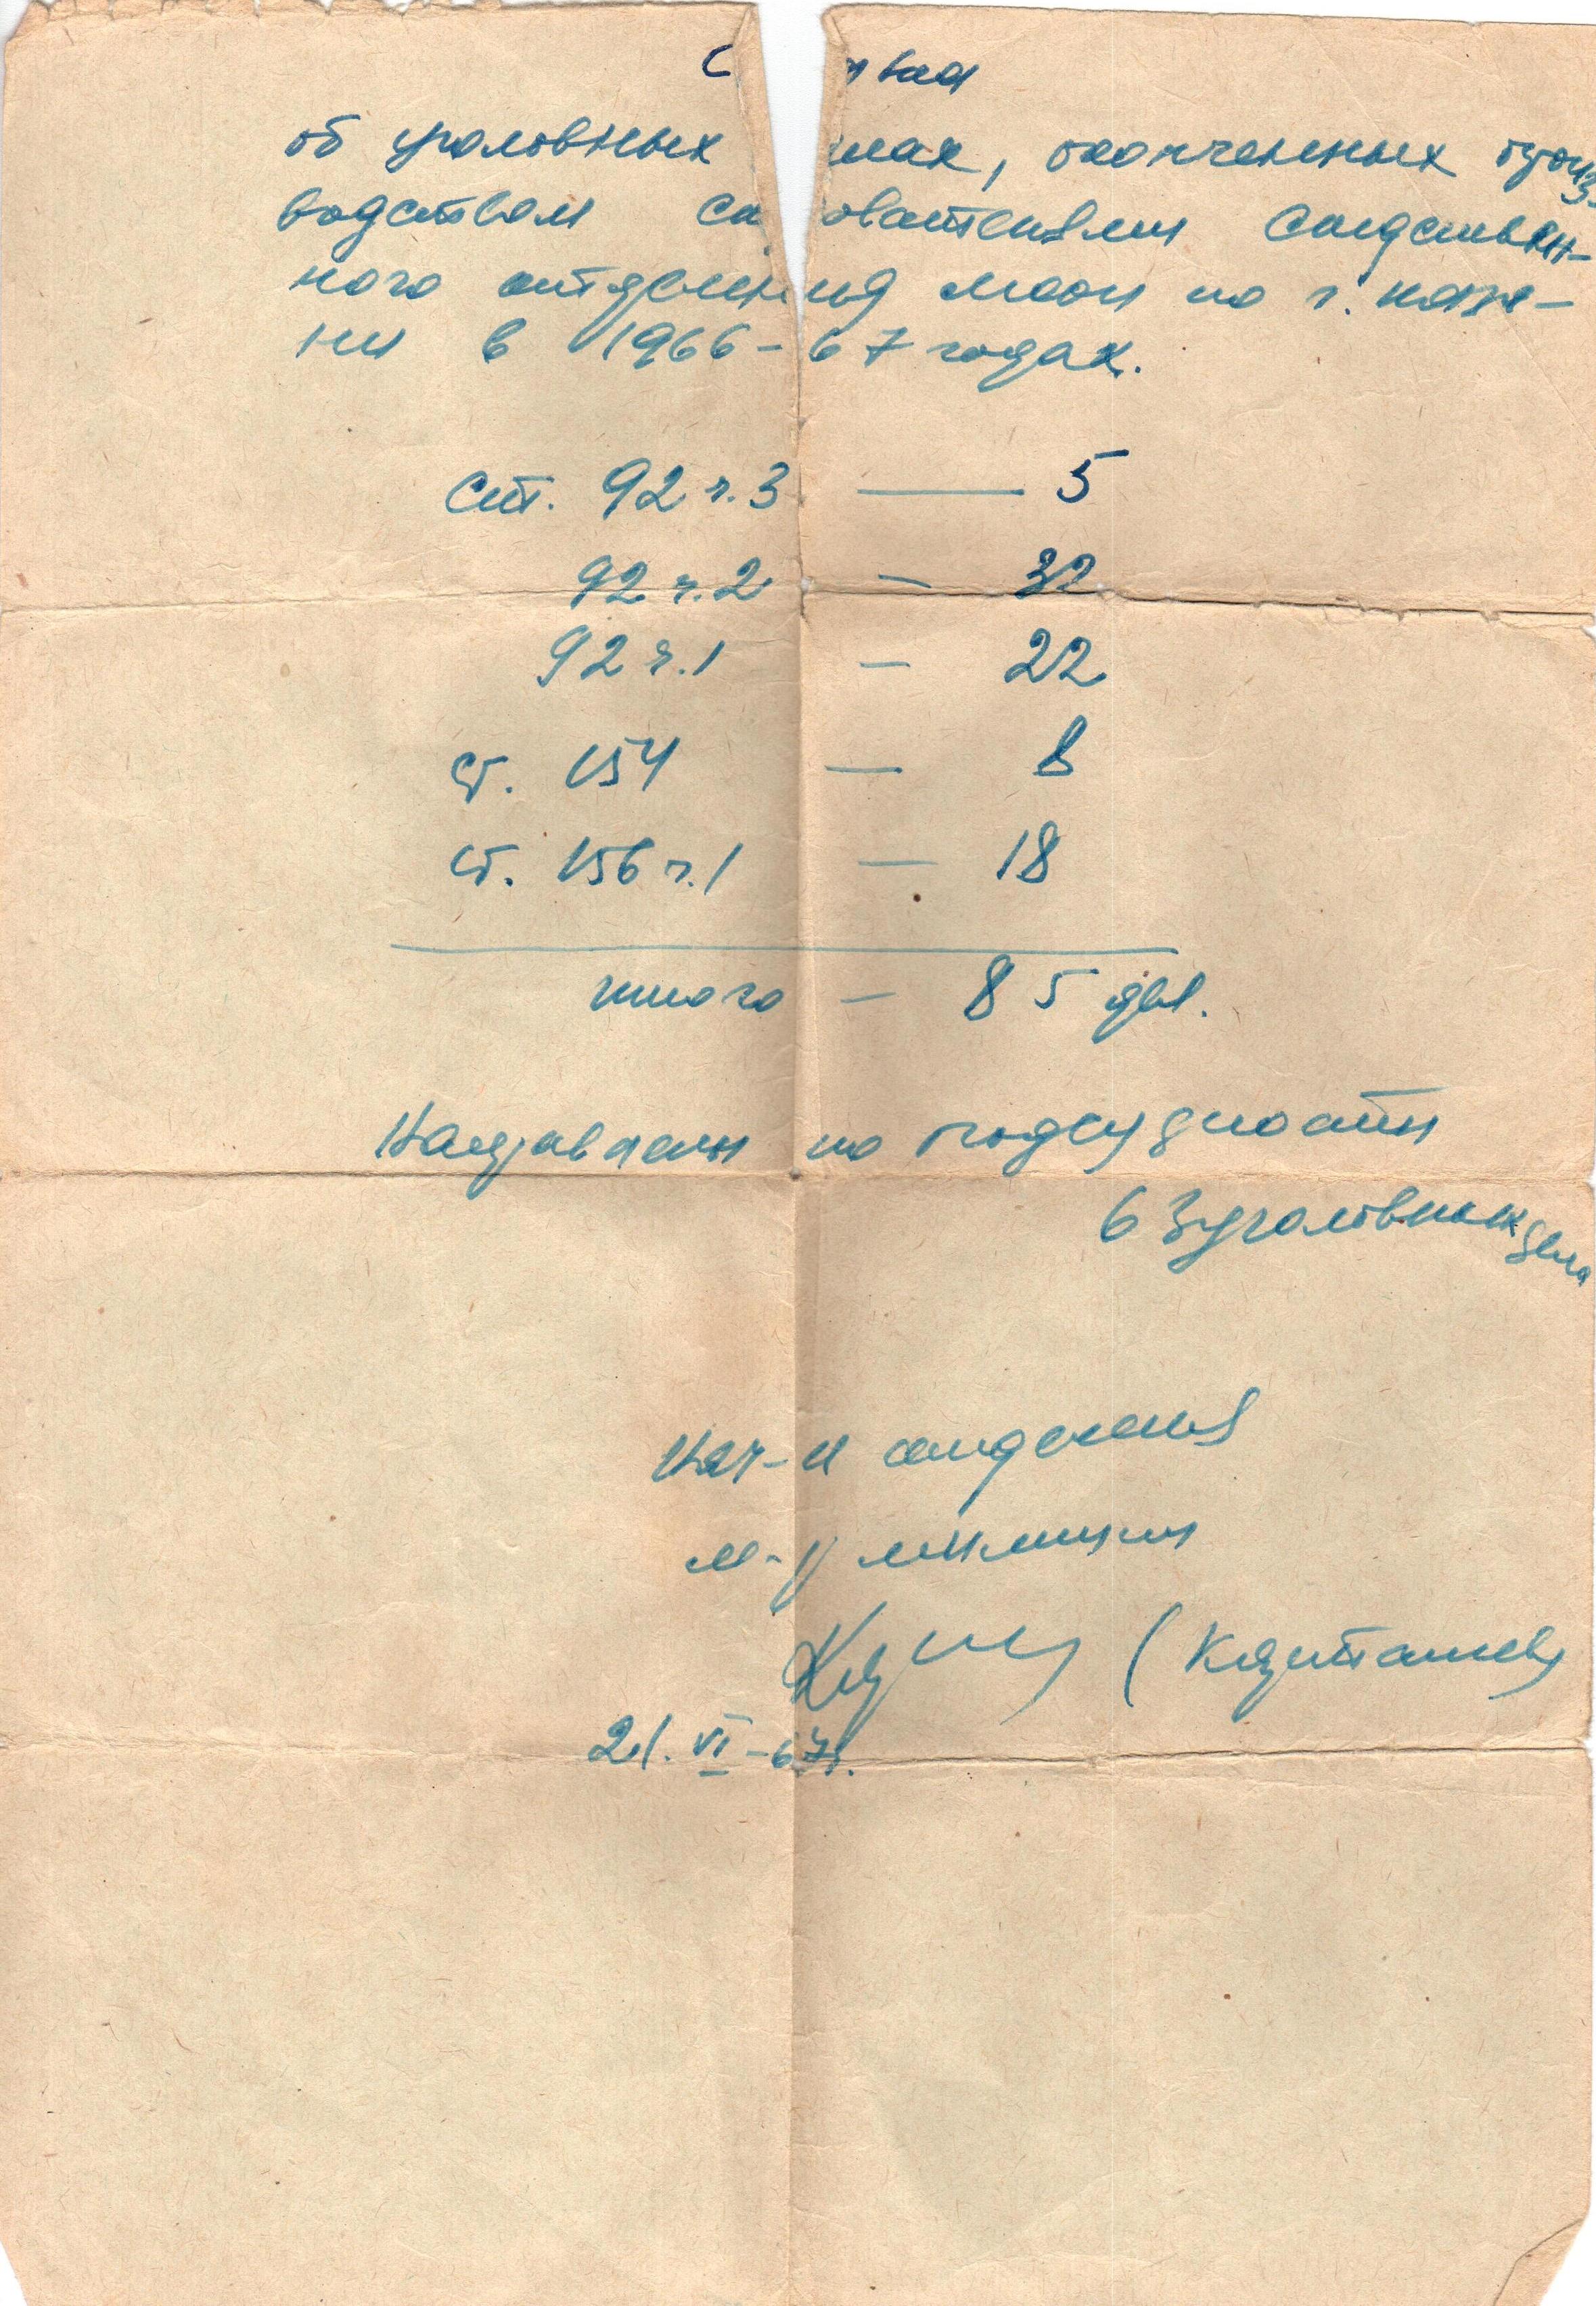 С вка
об уголовных лах, оконченных произ-
водством сл ователями следствен-
ного отделения МООП по г. Каза-
ни в 1966-67 годах.
Ст. 92 ч.3 — 5
92 ч.2 — 32
92 ч.1 — 22
ст. 154 — 8
ст. 156 ч.1 — 18
итого — 85 дел.
Направлены по подсудности
63 уголовных дела
Нач-к отделения
м-р милиции
21.VI-67г.